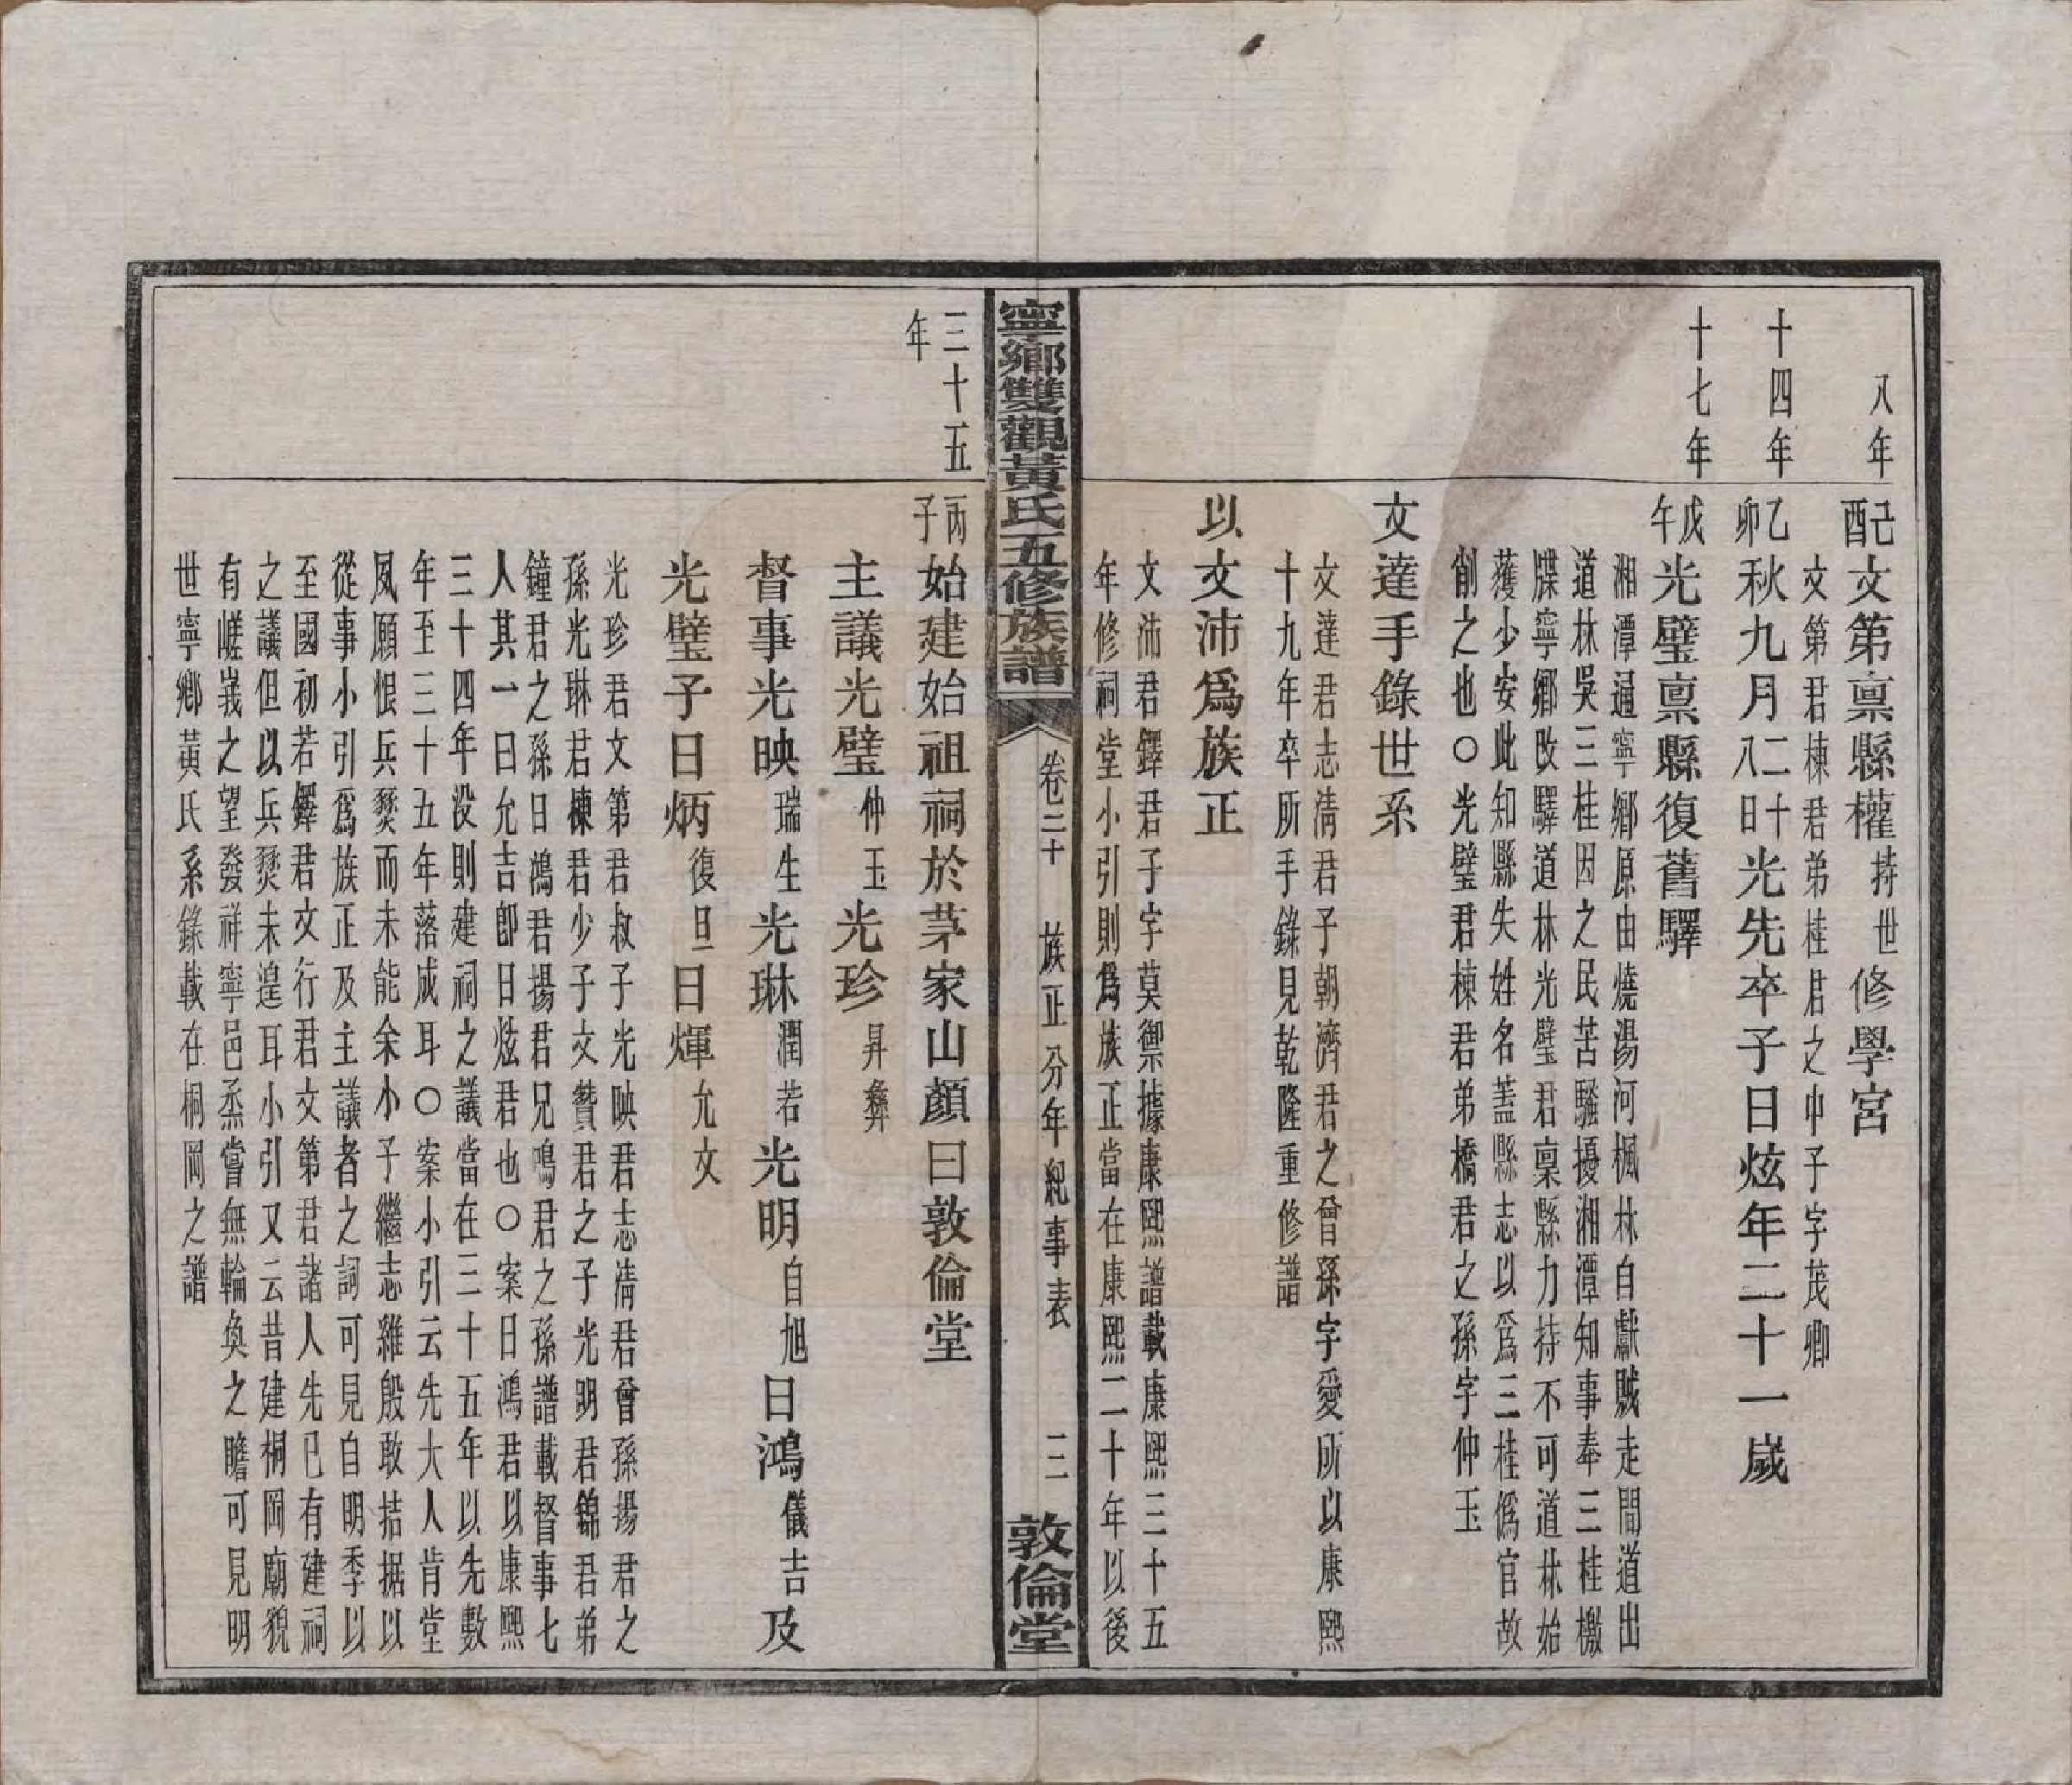 八年
己酉文第禀縣權持世修學宮
文第君棟君弟桂君之中子字茂卿
十四年
乙卯秋九月二十八日光先卒子日炫年二十一歲
十七年
戊午光璧禀縣復舊驛
湘潭通寧鄉原由燒湯河楓林自獻賊走間道出
道林吳三桂因之民苦騷擾湘潭知事奉三桂檄
牒寧鄉改驛道林光璧君禀縣力持不可道林始
獲少安此知縣失姓名蓋縣志以爲三桂僞官故
削之也○光璧君棟君弟橋君之孫字仲玉
文達手錄世系
文達君志淸君子朝濟君之曾孫字愛所以康熙
十九年卒所手錄見乾隆重修譜
以文沛爲族正
文沛君鐸君子字莫禦據康熙譜載康熙三十五
年修祠堂小引則爲族正當在康熙二十年以後
寧鄉雙觀黃氏五修族譜
卷二十 族正分年紀事表 二二
敦倫堂
三十五年
丙子始建始祖祠於茅家山顏曰敦倫堂
主議光璧仲玉光珍昇彝
督事光映瑞生光琳潤若光明自旭日鴻儀吉及
光璧子日炳復旦日煇允文
光珍君文第君叔子光映君志淸君曾孫揚君之
孫光琳君棟君少子文贊君之子光明君錦君弟
鐘君之孫日鴻君揚君兄鳴君之孫譜載督事七
人其一曰允吉卽日炫君也○案日鴻君以康熙
三十四年没則建祠之議當在三十五年以先數
年至三十五年落成耳○案小引云先大人肯堂
夙願恨兵燹而未能余小子繼志雖殷敢拮据以
從事小引爲族正及主議者之詞可見自明季以
至國初若鐸君文行君文第君諸人先已有建祠
之議但以兵燹未遑耳小引又云昔建桐岡廟貌
有嵯峩之望發祥寧邑烝嘗無輪奐之瞻可見明
世寧鄉黃氏系錄載在桐岡之譜